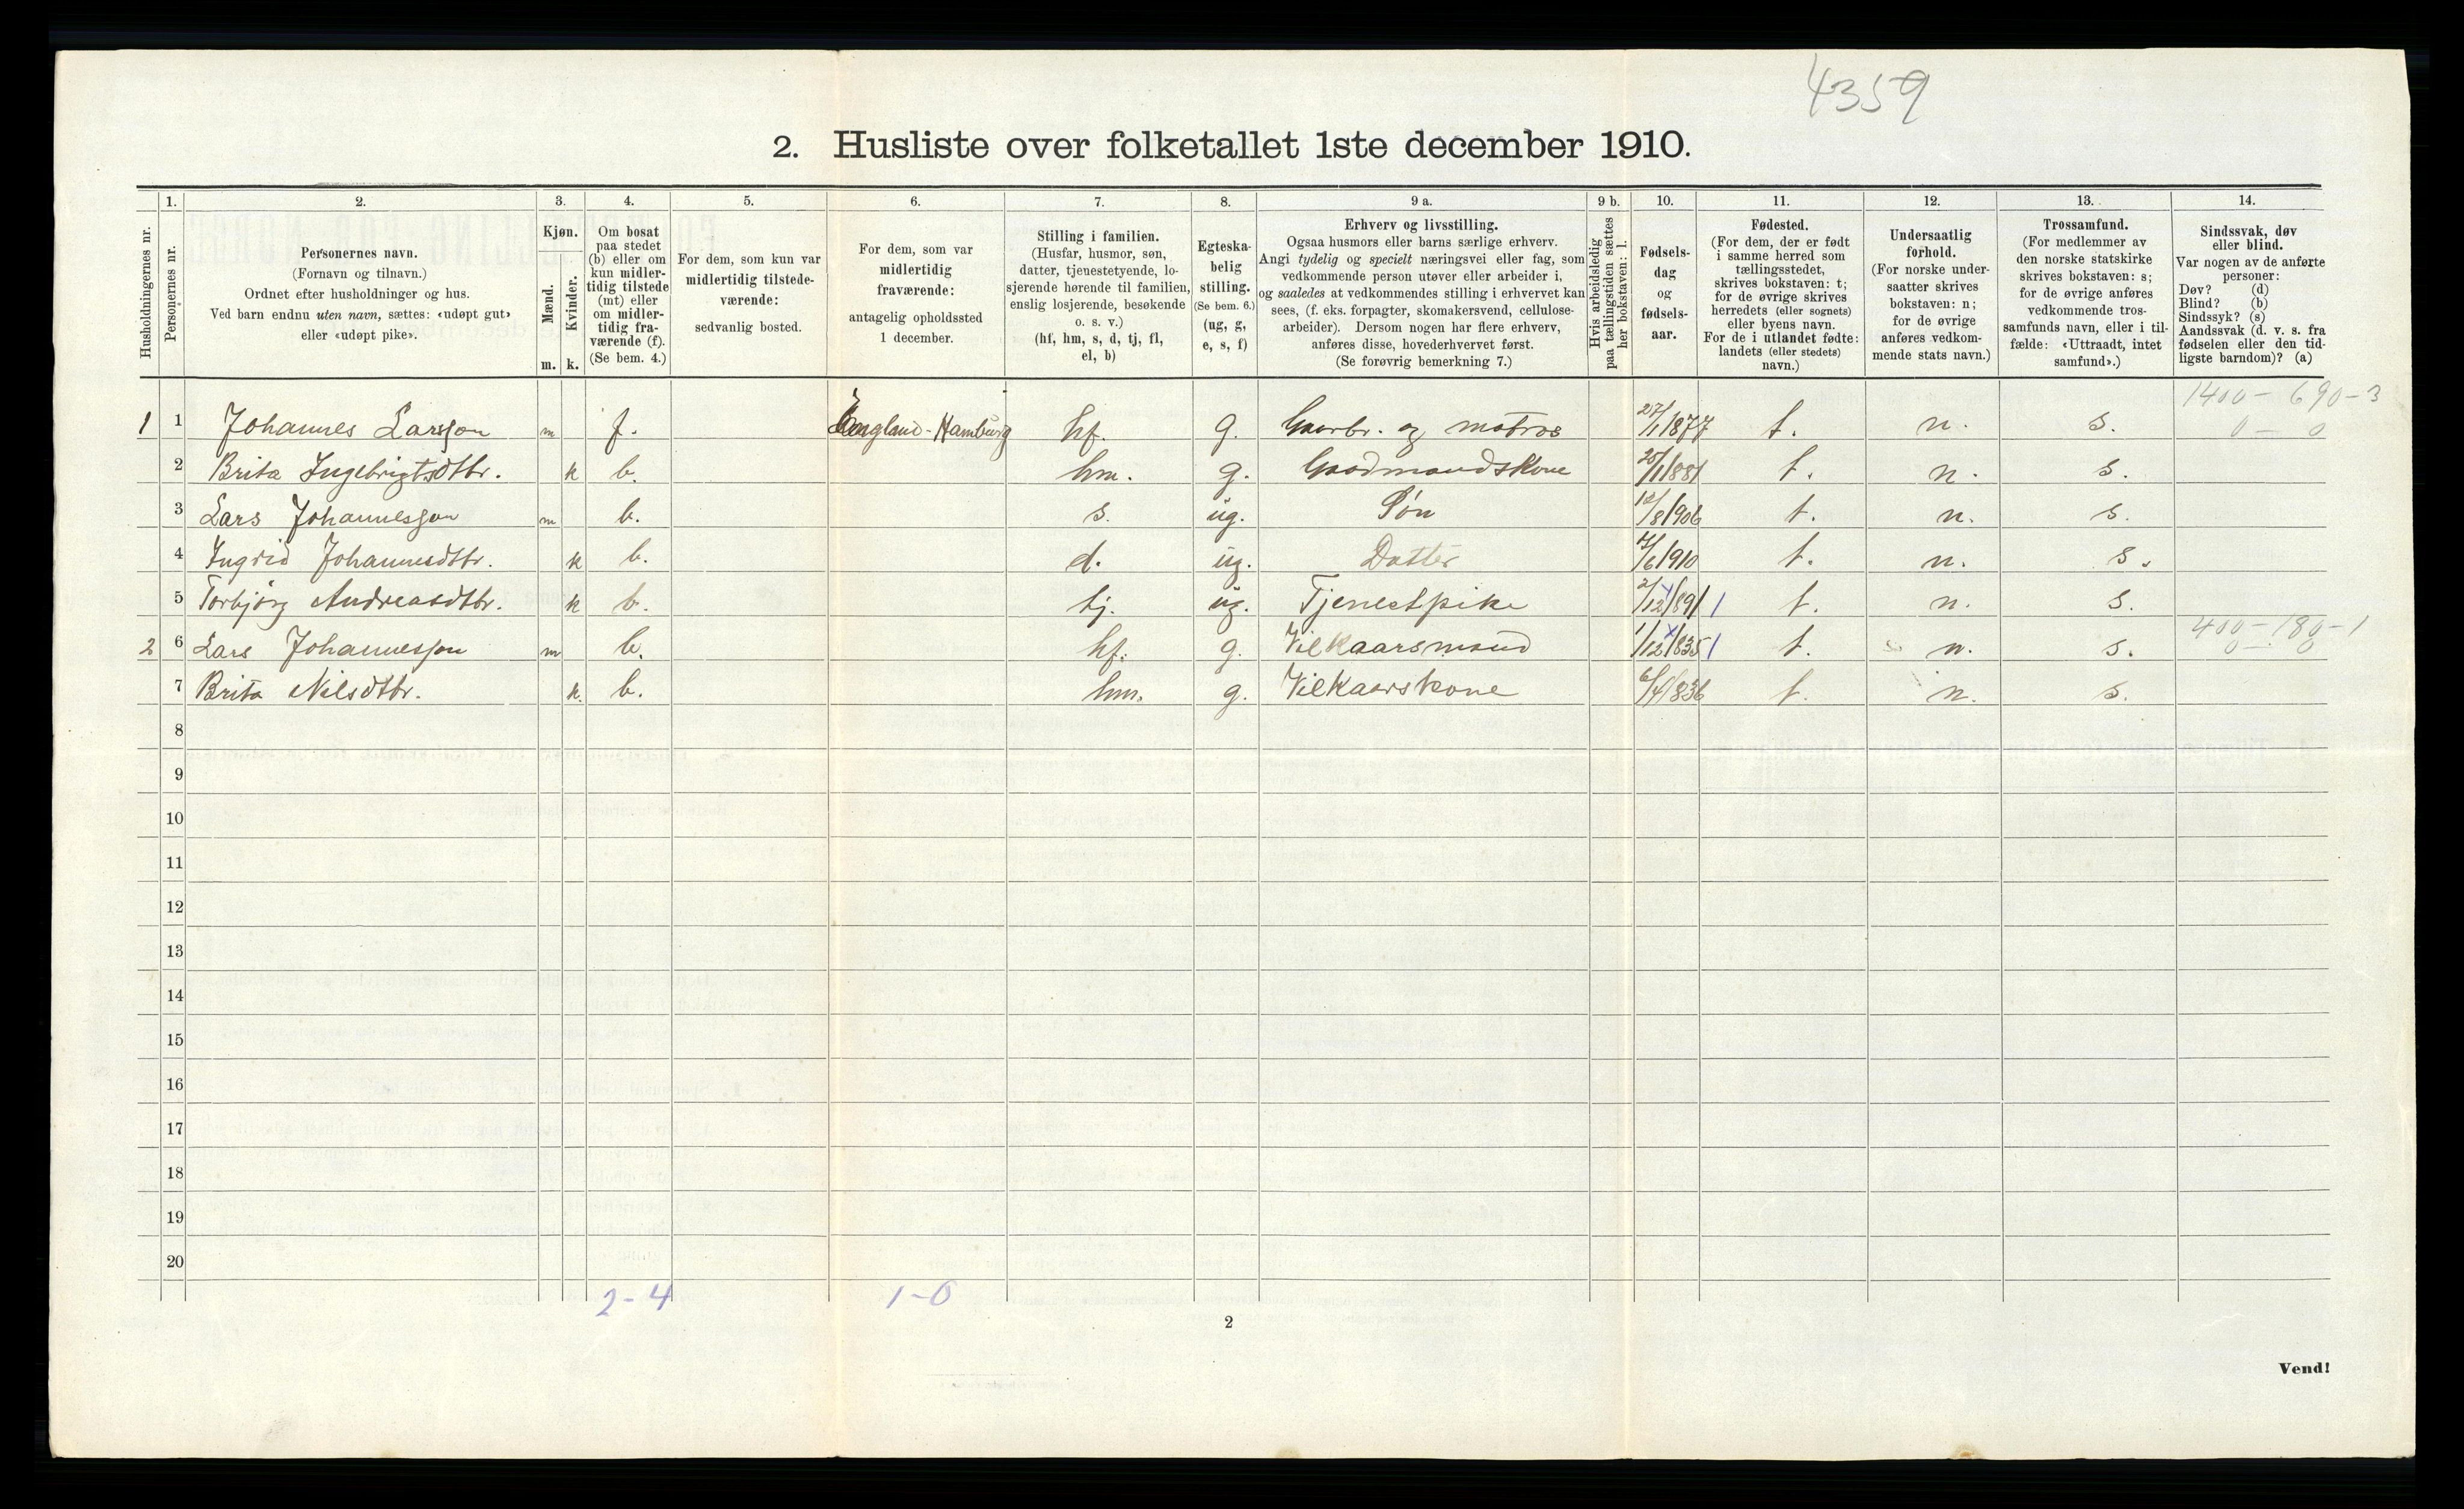 4359
2. Husliste over folketallet 1ste december 1910.
1. 2. 3. 4. 5. 6. 7. 8. 9 a. 9 b. 10. 11. 12. 13. 14.
Husholdningernes nr.
Personernes nr.
Personernes navn.
(Fornavn og tilnavn.)
Ordnet efter husholdninger og hus.
Ved barn endnu uten navn, sættes: «udøpt gut»
eller «udøpt pike».
Kjøn.
Mænd.
Kvinder.
m. k.
Om bosat
paa stedet
(b) eller om
kun midler-
tidig tilstede
(mt) eller
om midler-
tidig fra-
værende (f).
(Se bem. 4.)
For dem, som kun var
midlertidig tilstede-
værende:
sedvanlig bosted.
For dem, som var
midlertidig
fraværende:
antagelig opholdssted
1 december.
Stilling i familien.
(Husfar, husmor, søn,
datter, tjenestetyende, lo-
sjerende hørende til familien,
enslig losjerende, besøkende
o. s. v.)
(hf, hm, s, d, tj, fl,
el, b)
Egteska-
belig
stilling.
(Se bem. 6.)
(ug, g,
e, s, f)
Erhverv og livsstilling.
Ogsaa husmors eller barns særlige erhverv.
Angi tydelig og specielt næringsvei eller fag, som
vedkommende person utøver eller arbeider i,
og saaledes at vedkommendes stilling i erhvervet kan
sees, (f. eks. forpagter, skomakersvend, cellulose-
arbeider). Dersom nogen har flere erhverv,
anføres disse, hovederhvervet først.
(Se forøvrig bemerkning 7.)
Hvis arbeidsledig
paa tællingstiden sættes
her bokstaven: l.
Fødsels-
dag
og
fødsels-
aar.
Fødested.
(For dem, der er født
i samme herred som
tællingsstedet,
skrives bokstaven: t;
for de øvrige skrives
herredets (eller sognets)
eller byens navn.
For de i utlandet fødte:
landets (eller stedets)
navn.)
Undersaatlig
forhold.
(For norske under-
saatter skrives
bokstaven: n;
for de øvrige
anføres vedkom-
mende stats navn.)
Trossamfund.
(For medlemmer av
den norske statskirke
skrives bokstaven: s;
for de øvrige anføres
vedkommende tros-
samfunds navn, eller i til-
fælde: «Uttraadt, intet
samfund».)
Sindssvak, døv
eller blind.
Var nogen av de anførte
personer:
Døv? (d)
Blind? (b)
Sindssyk? (s)
Aandssvak (d. v. s. fra
fødselen eller den tid-
ligste barndom)? (a)
1400 - 690 - 3
1 1 Johannes Larsson m f. England - Hamburg hf. g. Gaarbr. og matros 27/1 1877 t. n. s. 0 - 0
2 Brita Ingebrigtsdtr. k b. hm. g. Gaardmandskone 25/1 1881 t. n. s.
3 Lars Johannesson m b. s. ug. Søn 12/8 1906 t. n. s.
4 Ingrid Johannesdtr. k b. d. ug. Datter /6 1910 t. n. s.
5 Torbjørg Andreasdtr. k b. tj. ug. Tjenestpike 2/12 1891 t. n. s.
400 - 180 - 1
2 6 Lars Johannesson m b. hf. g. Vilkaarsmand 1/12 1835 t. n. s. 0 - 0
7 Brita Nilsdtr. k. b. hm. g. Vilkaarskone 6/4 1836 t. n. s.
8
9
10
11
12
13
14
15
16
17
18
19
20
2 - 4 1 - 0
2
Vend!